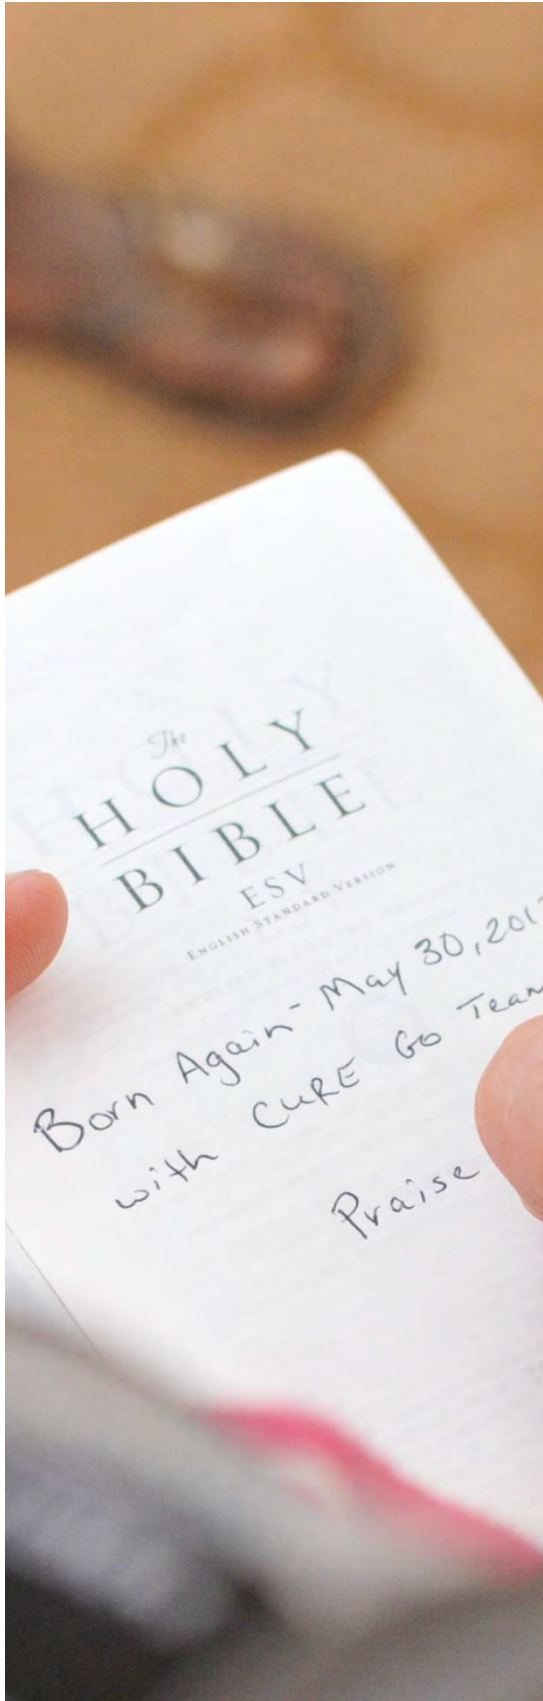 The
HOLY
BIBLE
ESV
ENGLISH STANDARD VERSION
Born Again - May 30, 201
with CURE Go Team
Praise